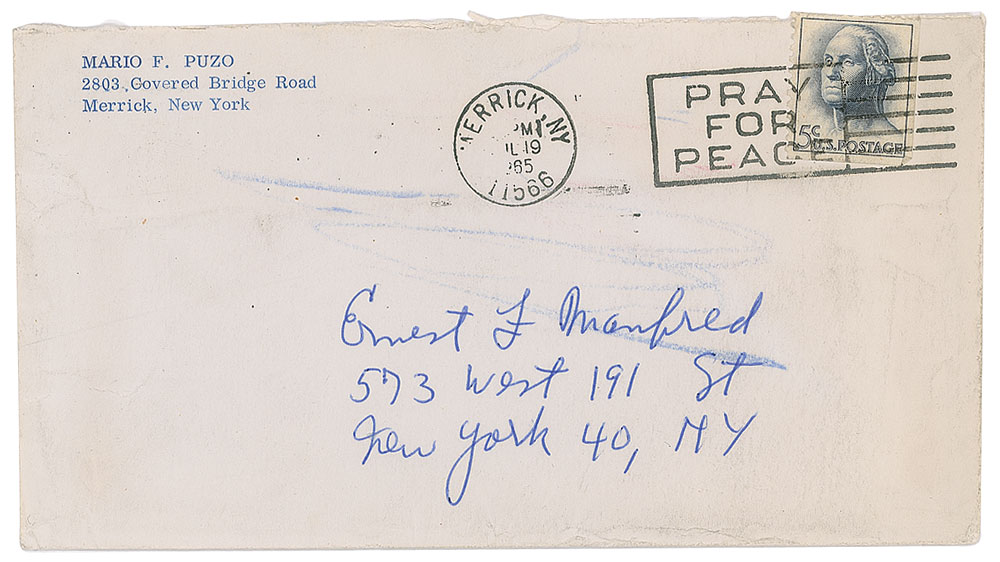 MARIO F. PUZO
2803 Covered Bridge Road
Merrick, New York
MERRICK, NY
PM
JL 19
1965
11566
PRAY
FOR
PEACE
5c
U.S.POSTAGE
Ernest F Manfred
573 West 191 St
New York 40, NY